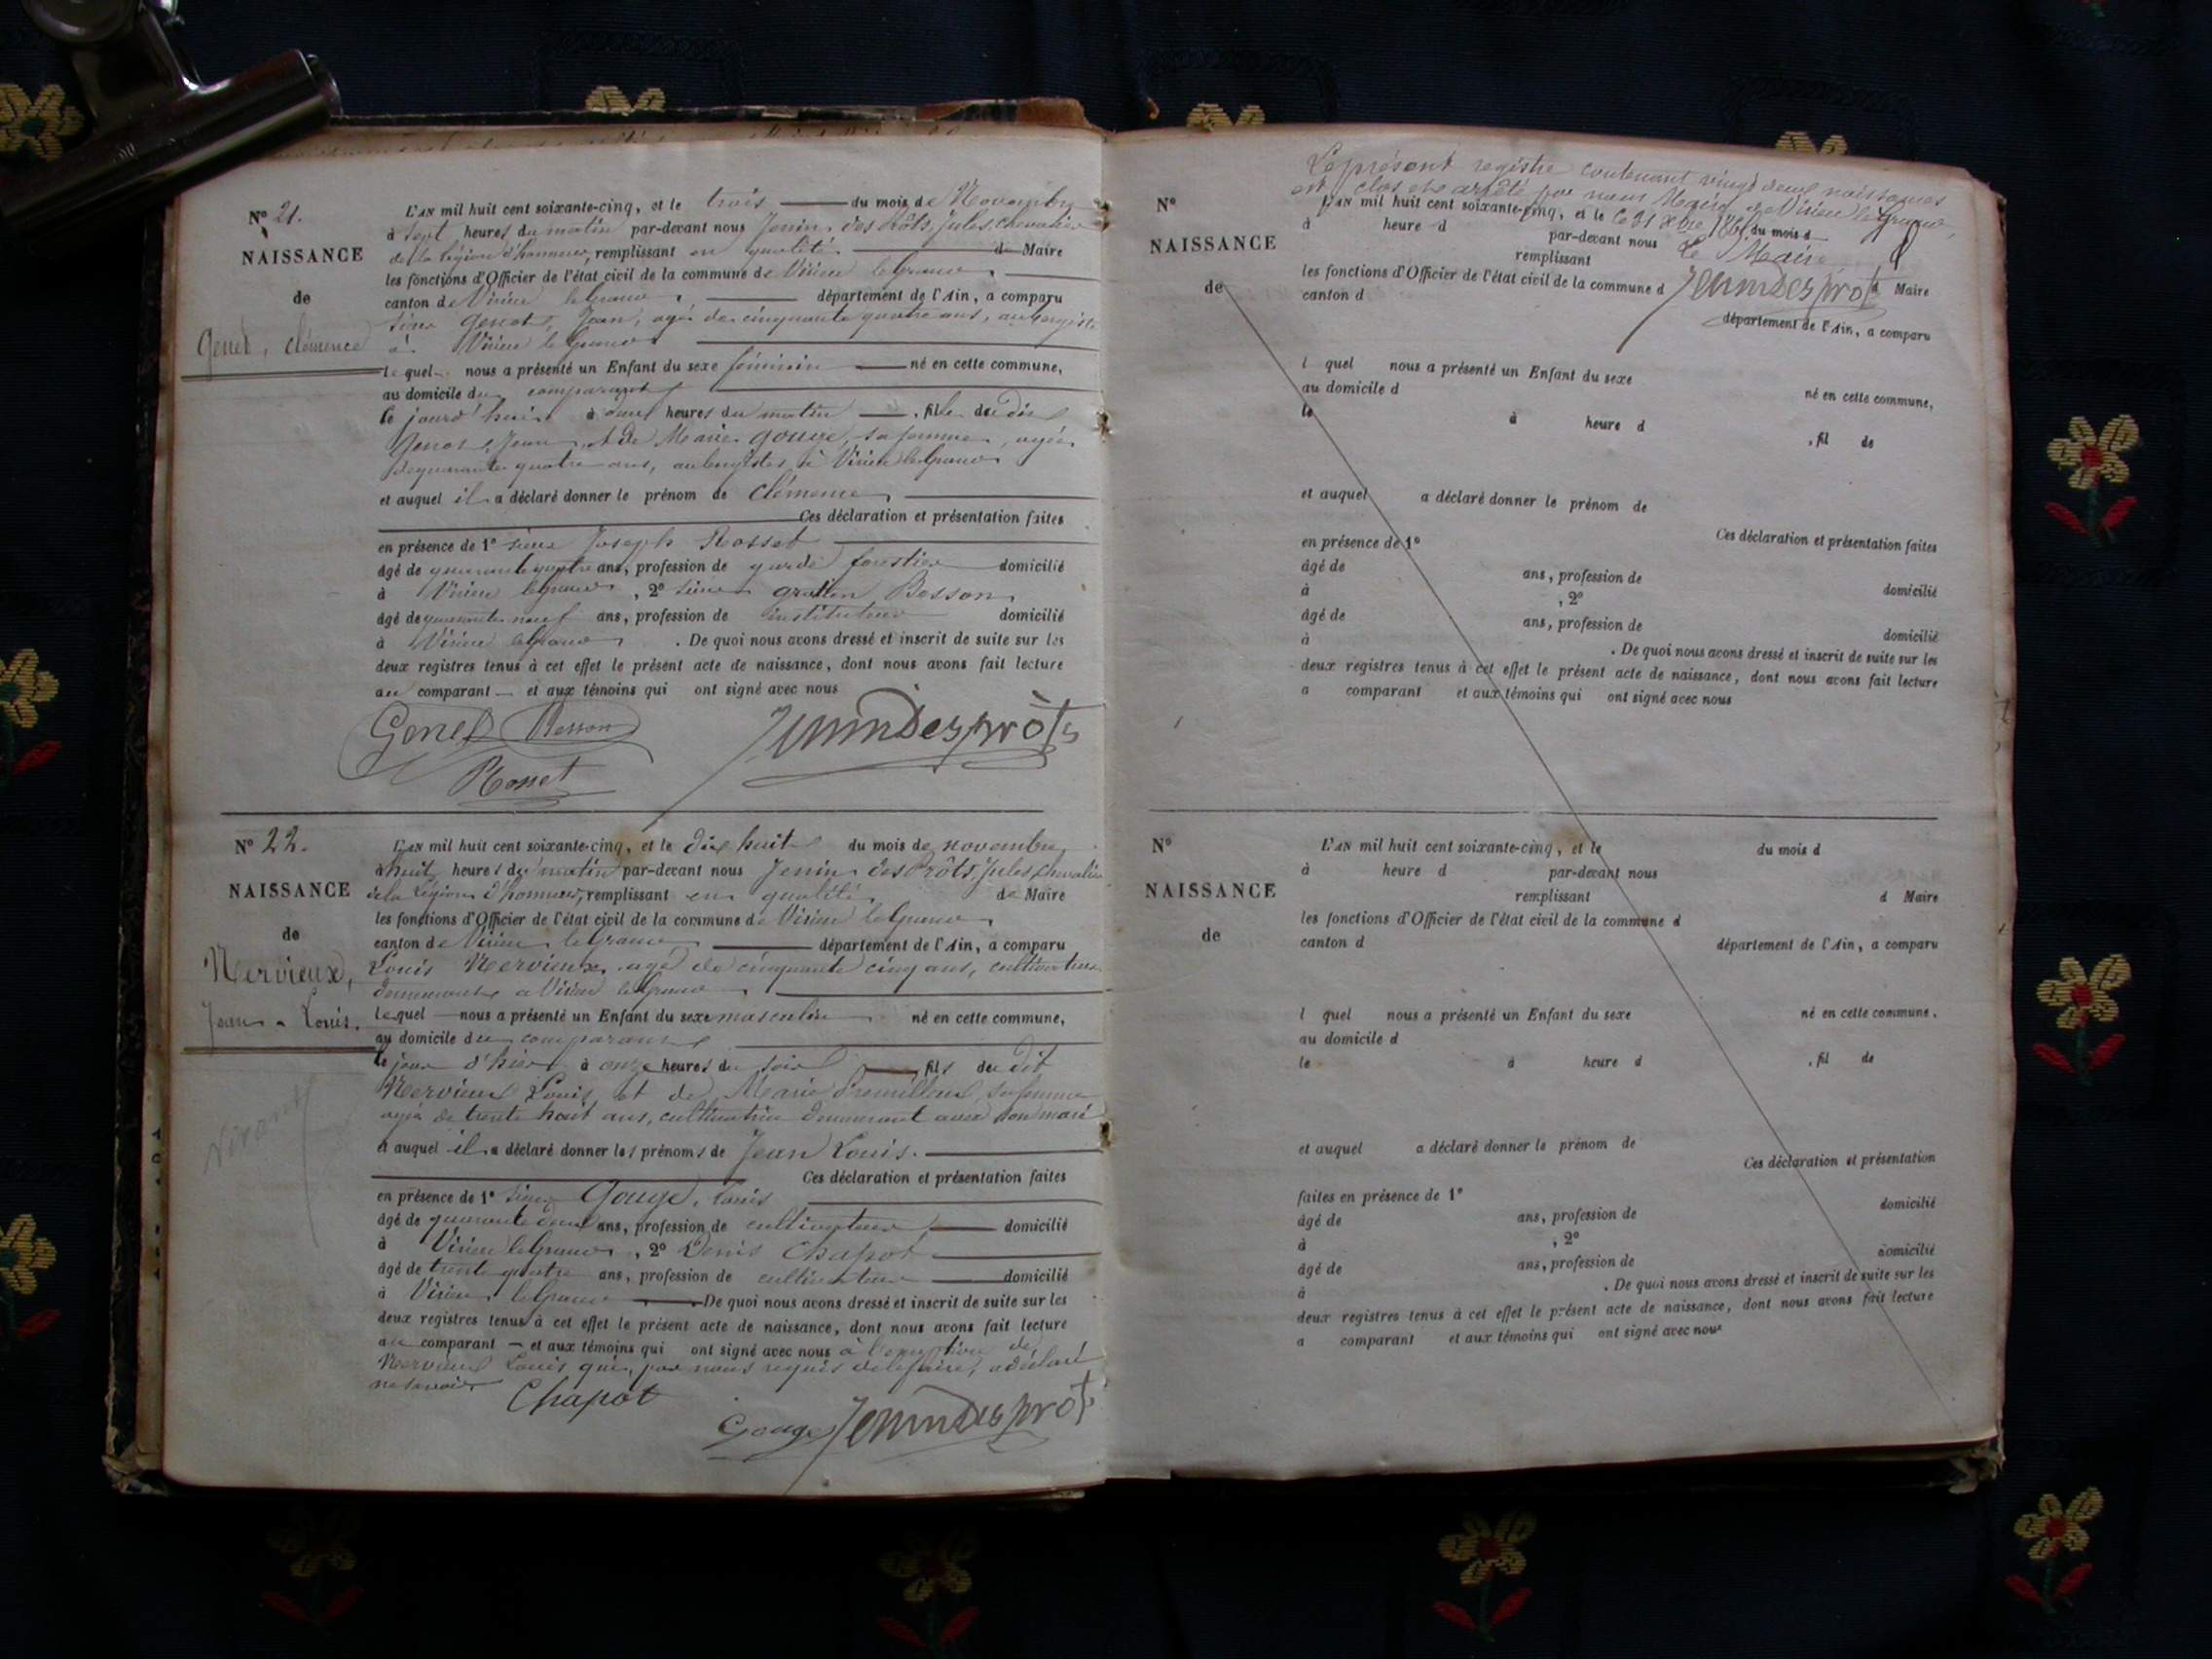 N° 21.
NAISSANCE
de
Genet, Clémence
L'AN mil huit cent soixante-cinq, et le trois du mois de Novembre
à sept heures du matin par-devant nous Jenin des Prôts, Jules, chevalier
de la légion d'honneur, remplissant en qualité de Maire
les fonctions d'Officier de l'état civil de la commune de Virieu le Grand
canton de Virieu le Grand, département de l'Ain, a comparu
sieur Genet, Jean, agé de cinquante quatre ans, aubergiste
à Virieu le Grand
lequel nous a présenté un Enfant du sexe féminin né en cette commune,
au domicile du comparant
le jourd'hui à deux heures du matin, fille du dit
Genet, Jean, et de Marie Gouge, sa femme, agée
de quarante quatre ans, aubergistes à Virieu le Grand
et auquel il a déclaré donner le prénom de Clémence
Ces déclaration et présentation faites
en présence de 1° sieur Joseph Rosset
âgé de quarante quatre ans, profession de garde forestier domicilié
à Virieu le Grand, 2° sieur Besson
âgé de quarante neuf ans, profession de instituteur domicilié
à Virieu le Grand. De quoi nous avons dressé et inscrit de suite sur les
deux registres tenus à cet effet le présent acte de naissance, dont nous avons fait lecture
au comparant et aux témoins qui ont signé avec nous
Genet Besson Jenin Des prôts
Rosset
N° 22.
NAISSANCE
de
Nervieux,
Jean-Louis.
Vivant
L'AN mil huit cent soixante-cinq, et le dix huit du mois de novembre
à huit heures du matin par-devant nous Jenin des Prôts, Jules, chevalier
de la Légion d'honneur, remplissant en qualité de Maire
les fonctions d'Officier de l'état civil de la commune de Virieu le Grand
canton de Virieu le Grand département de l'Ain, a comparu
Louis Nervieux, agé de cinquante cinq ans, cultivateur
demeurant à Virieu le Grand
lequel nous a présenté un Enfant du sexe masculin né en cette commune,
au domicile du comparant
le jour d'hier à onze heures du soir, fils du dit
Nervieux Louis et de Marie sa femme
agée de trente huit ans, cultivatrice demeurant avec son mari
et auquel il a déclaré donner les prénoms de Jean Louis.
Ces déclaration et présentation faites
en présence de 1° sieur Gouge, Louis
âgé de quarante deux ans, profession de cultivateur domicilié
à Virieu le Grand, 2° Denis Chapot
âgé de trente quatre ans, profession de cultivateur domicilié
à Virieu le Grand De quoi nous avons dressé et inscrit de suite sur les
deux registres tenus à cet effet le présent acte de naissance, dont nous avons fait lecture
au comparant et aux témoins qui ont signé avec nous à l'exception de
Nervieux Louis qui, par nous requis de le faire, a déclaré
ne savoir
Chapot
Gouge Jenin Des prôts
Le présent registre contenant vingt deux naissances
est clos et arrêté par nous Maire de Virieu le Grand,
le 31 Xbre 1865
Le Maire
Jenin Des prôts
N°
NAISSANCE
de
L'AN mil huit cent soixante-cinq, et le du mois d
à heure d par-devant nous
remplissant d Maire
les fonctions d'Officier de l'état civil de la commune d
canton d département de l'Ain, a comparu
l quel nous a présenté un Enfant du sexe né en cette commune,
au domicile d
le à heure d , fil de
et auquel a déclaré donner le prénom de
Ces déclaration et présentation faites
en présence de 1°
âgé de ans, profession de domicilié
à , 2°
âgé de ans, profession de domicilié
à . De quoi nous avons dressé et inscrit de suite sur les
deux registres tenus à cet effet le présent acte de naissance, dont nous avons fait lecture
a comparant et aux témoins qui ont signé avec nous
N°
NAISSANCE
de
L'AN mil huit cent soixante-cinq, et le du mois d
à heure d par-devant nous
remplissant d Maire
les fonctions d'Officier de l'état civil de la commune d
canton d département de l'Ain, a comparu
l quel nous a présenté un Enfant du sexe né en cette commune.
au domicile d
le à heure d , fil de
et auquel a déclaré donner le prénom de
Ces déclaration et présentation
faites en présence de 1°
âgé de ans, profession de domicilié
à , 2°
âgé de ans, profession de domicilié
à . De quoi nous avons dressé et inscrit de suite sur les
deux registres tenus à cet effet le présent acte de naissance, dont nous avons fait lecture
a comparant et aux témoins qui ont signé avec nous